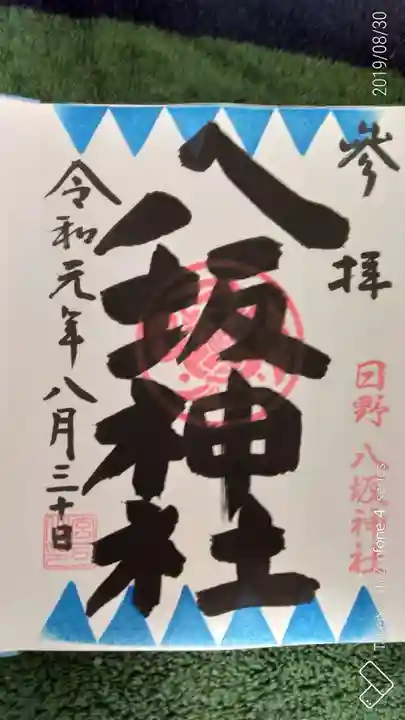 2019/08/30
參拝
日野八坂神社
八坂神社
令和元年八月三十日